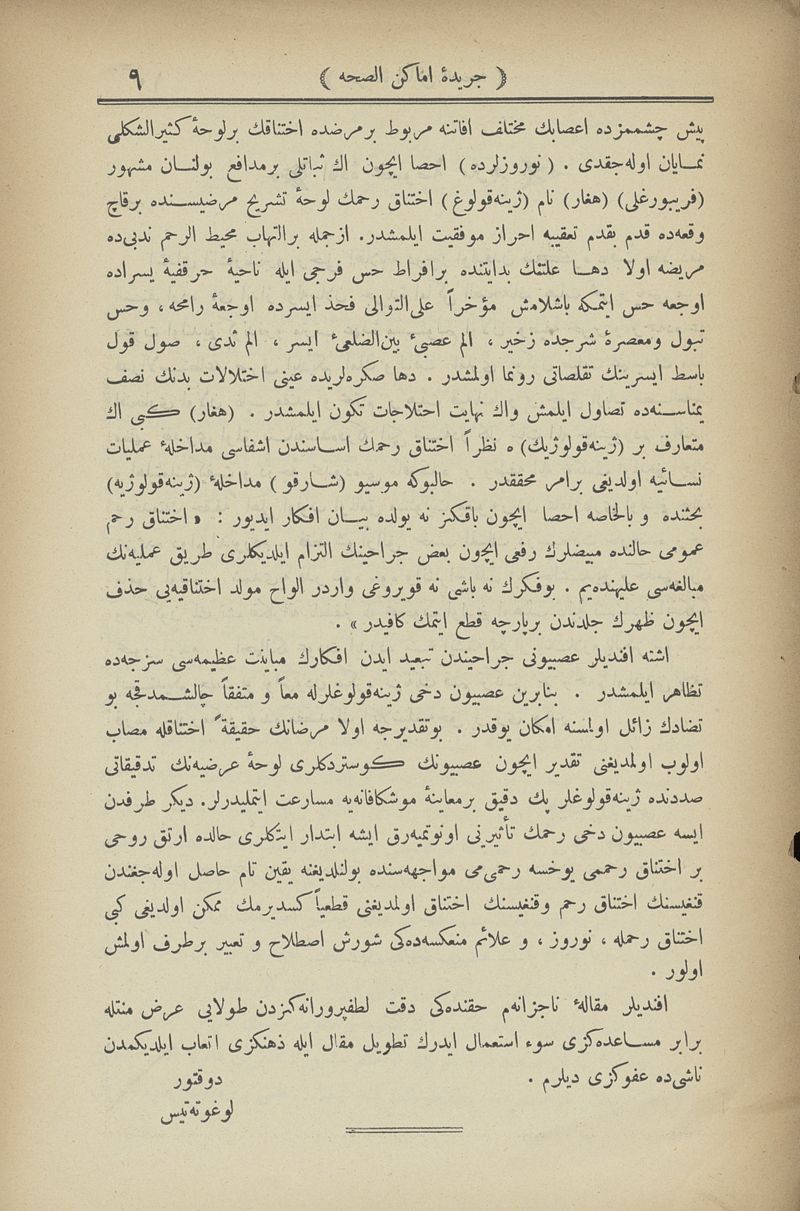 ﴿ جريدۀ اماكن الصحه ﴾ ٩
پيش چشممزده اعصابك مختلف افاتنه مربوط برمرضده اختناقك برلوحۀ كثيرالشكلى
نمايان اوله‌جقدى . (نوروزلرده) احصا ايچون اك ثباتلى برمدافع بولنان مشهور
(فريبورغلى) (هغار) نام (ژينه‌قولوغ) اختناق رحمك لوحۀ تشريح مرضيسنده برقاچ
وقعه‌ده قدم بقدم تعقيبه احراز موفقيت ايلمشدر. ازجمله برالتهاب محيط الرحم ندبى‌ده
مريضه اولا دها علتنك بدايتنده برافراط حس فرجى ايله ناحيۀ حرقفيۀ يسراده
اوجعه حس ايتمكه باشلامش مؤخراً على‌التوالى فخذ ايسرده اوجعۀ رامحه ، وحس
تبول ومعصرۀ شرجده زخير ، الم عصبىٔ بين‌الضلعىٔ ايسر ، الم ثدى ، صول قول
باسط ايسرينك تقلصاتى رونما اولمشدر . دها صكره‌لريده عينى اختلالات بدنك نصف
يمناسنه‌ده تصاول ايلمش واك نهايت احتلاجات تكون ايلمشدر . (هغار) كبى اك
متعارف بر (ژينه‌قولوژيك) ه نظراً اختناق رحمك اساسندن اشفاسى مداخلۀ عمليات
نسائيه اولديغى برامر محققدر . حالبوكه موسيو (شارقو) مداخلۀ (ژينه‌قولوژيه)
بحثنده و بالخاصه احصا ايچون باقكز نه يولده بيان افكار ايديور : « اختناق رحم
عمومى حالنده مبيضلرك رفعى ايچون بعض جراحينك التزام ايلديكلرى طريق عمليه‌نك
مبالغه‌سى عليهنده‌يم . بوفكرك نه باشى نه قويروغى واردر الواح مولد اختناقيه‌يى حذف
ايچون ظهرك جلدندن برپارچه قطع ايتمك كافيدر » .
اشته افنديلر عصبيونى جراحيندن تبعيد ايدن افكارك مباينت عظيمه‌سى سزجه‌ده
تظاهر ايلمشدر . بنابرين عصبيون دخى ژينه‌قولوغلرله معاً و متفقاً چالشمدقجه بو
تضادك زائل اولمسنه امكان يوقدر . بوتقديرجه اولا مرضانك حقيقةً اختناقله مصاب
اولوب اولمديغنى تقدير ايچون عصبيونك كوستردكلرى لوحۀ عرضيه‌نك تدقيقاتى
صددنده ژينه‌قولوغلر پك دقيق برمعاينۀ موشكافانه‌يه مسارعت ايتمليدرلر. ديكر طرفدن
ايسه عصبيون دخى رحمك تأثيرنى اونوتميه‌رق ايشه ابتدار ايتكلرى حالده ارتق روحى
بر اختناق رحممى يوخسه رحمى‌مى مواجهه‌سنده بولنلديغنه يقين تام حاصل اوله‌جغندن
قنغيسنك اختناق رحم وقنغيسنك اختناق اولمديغنى قطعياً كسديرمك ممكن اولديغى كبى
اختناق رحمله ، نوروز ، و علائم منعكسه‌ده‌كى شورش اصطلاح و تعبير برطرف اولمش
اولور .
افنديلر مقالۀ ناچزانه‌م حقنده‌كى دقت لطفپرورانه‌كزدن طولايى عرض منتله
برابر مساعده‌كزى سوء استعمال ايدرك تطويل مقال ايله ذهنكزى اتعاب ايلديكمدن
ناشى‌ده عفوكزى ديلرم .
دوقتور
لوغوته‌تيس